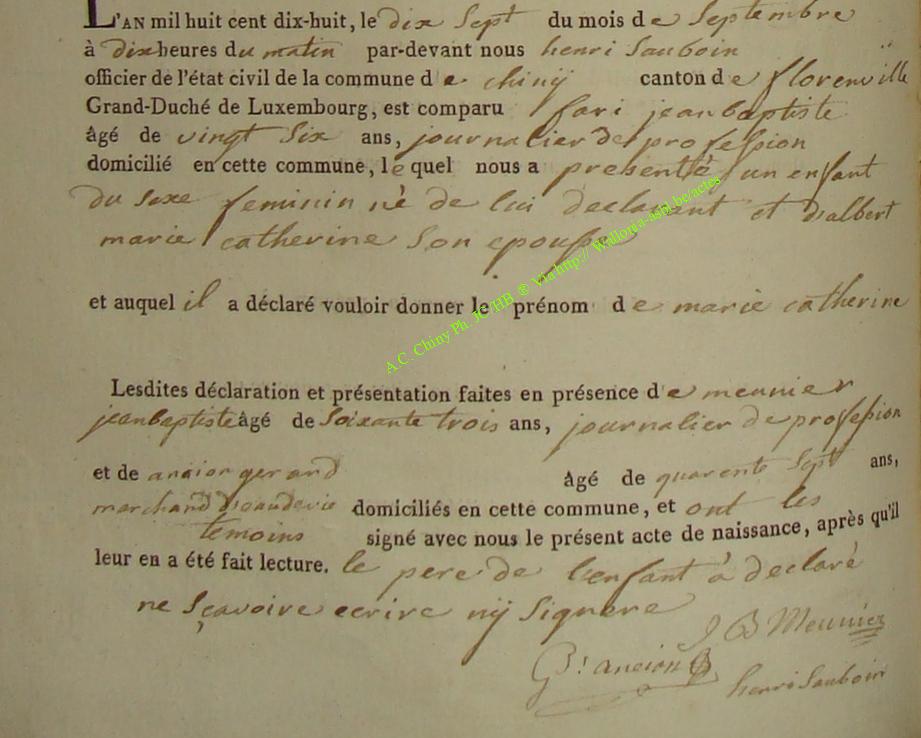 L'AN mil huit cent dix-huit, le dix Sept du mois de Septembre
à dix heures du matin par-devant nous henri Sauboin
officier de l'état civil de la commune de chinÿ canton de florenville
Grand-Duché de Luxembourg, est comparu fari jean baptiste
âgé de vingt Six ans, journalier de profession
domicilié en cette commune, lequel nous a presenté un enfant
du sexe feminin né de lui declarant et d'albert
marie catherine Son epousse
et auquel il a déclaré vouloir donner le prénom de marie catherine
Lesdites déclaration et présentation faites en présence de meunier
jean baptiste âgé de Soixante trois ans, journalier de profession
et de ancion gerard âgé de quarente Sept ans,
marchand d'eaudevie domiciliés en cette commune, et ont les
temoins signé avec nous le présent acte de naissance, après qu'il
leur en a été fait lecture. le pere de l'enfant à declaré
ne sçavoire ecrire nÿ Signere
J B Meunier
G: ancion
henri Sauboin
A.C. Chiny Ph. JC HB ® Via http:// Wallonia-asbl.be/actes